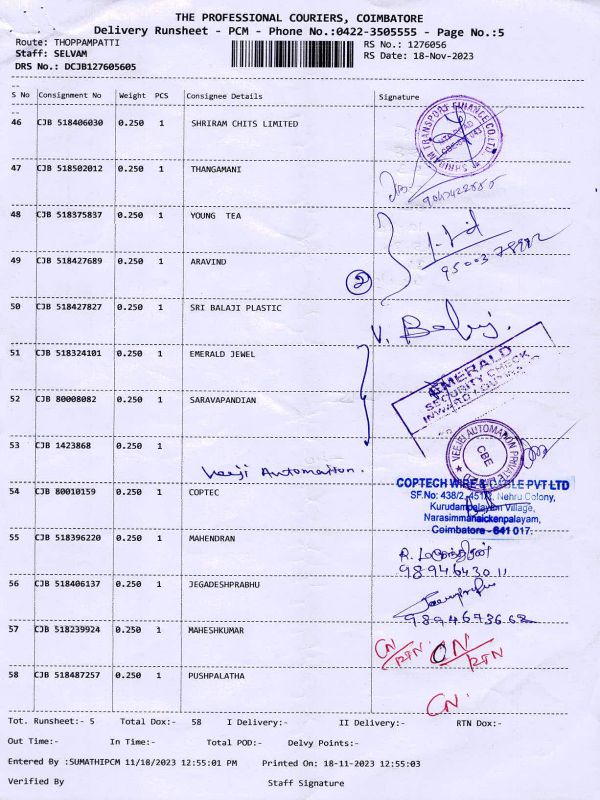 THE PROFESSIONAL COURIERS, COIMBATORE
Delivery Runsheet - PCM - Phone No.:0422-3505555 - Page No.:5
Route: THOPPAMPATTI RS No.: 1276056
Staff: SELVAM RS Date: 18-Nov-2023
DRS No.: DCJB127605605
S No Consignment No Weight PCS Consignee Details Signature
46 CJB 518406030 0.250 1 SHRIRAM CHITS LIMITED
SHRIRAM TRANSPORT FINANCE CO. LTD
47 CJB 518502012 0.250 1 THANGAMANI
48 CJB 518375837 0.250 1 YOUNG TEA
49 CJB 518427689 0.250 1 ARAVIND
2
50 CJB 518427827 0.250 1 SRI BALAJI PLASTIC
V. Balaji.
51 CJB 518324101 0.250 1 EMERALD JEWEL
EMERALD
SECURITY CHECK
INWARD
52 CJB 80008082 0.250 1 SARAVAPANDIAN
53 CJB 1423868 0.250 1
Veeji Automation.
VEEJEI AUTOMATION PRIVATE
CBE
54 CJB 80010159 0.250 1 COPTEC
COPTECH WIRE & CABLE PVT LTD
SF.No: 438/2, 451/2, Nehru Colony,
Kurudampalayam Village,
Narasimmanaickenpalayam,
Coimbatore - 641 017.
55 CJB 518396220 0.250 1 MAHENDRAN
9894643011
56 CJB 518406137 0.250 1 JEGADESHPRABHU
57 CJB 518239924 0.250 1 MAHESHKUMAR
CN/RTN. CN/RTN
58 CJB 518487257 0.250 1 PUSHPALATHA
CN.
Tot. Runsheet:- 5 Total Dox:- 58 I Delivery:- II Delivery:- RTN Dox:-
Out Time:- In Time:- Total POD:- Delvy Points:-
Entered By :SUMATHIPCM 11/18/2023 12:55:01 PM Printed On: 18-11-2023 12:55:03
Verified By Staff Signature